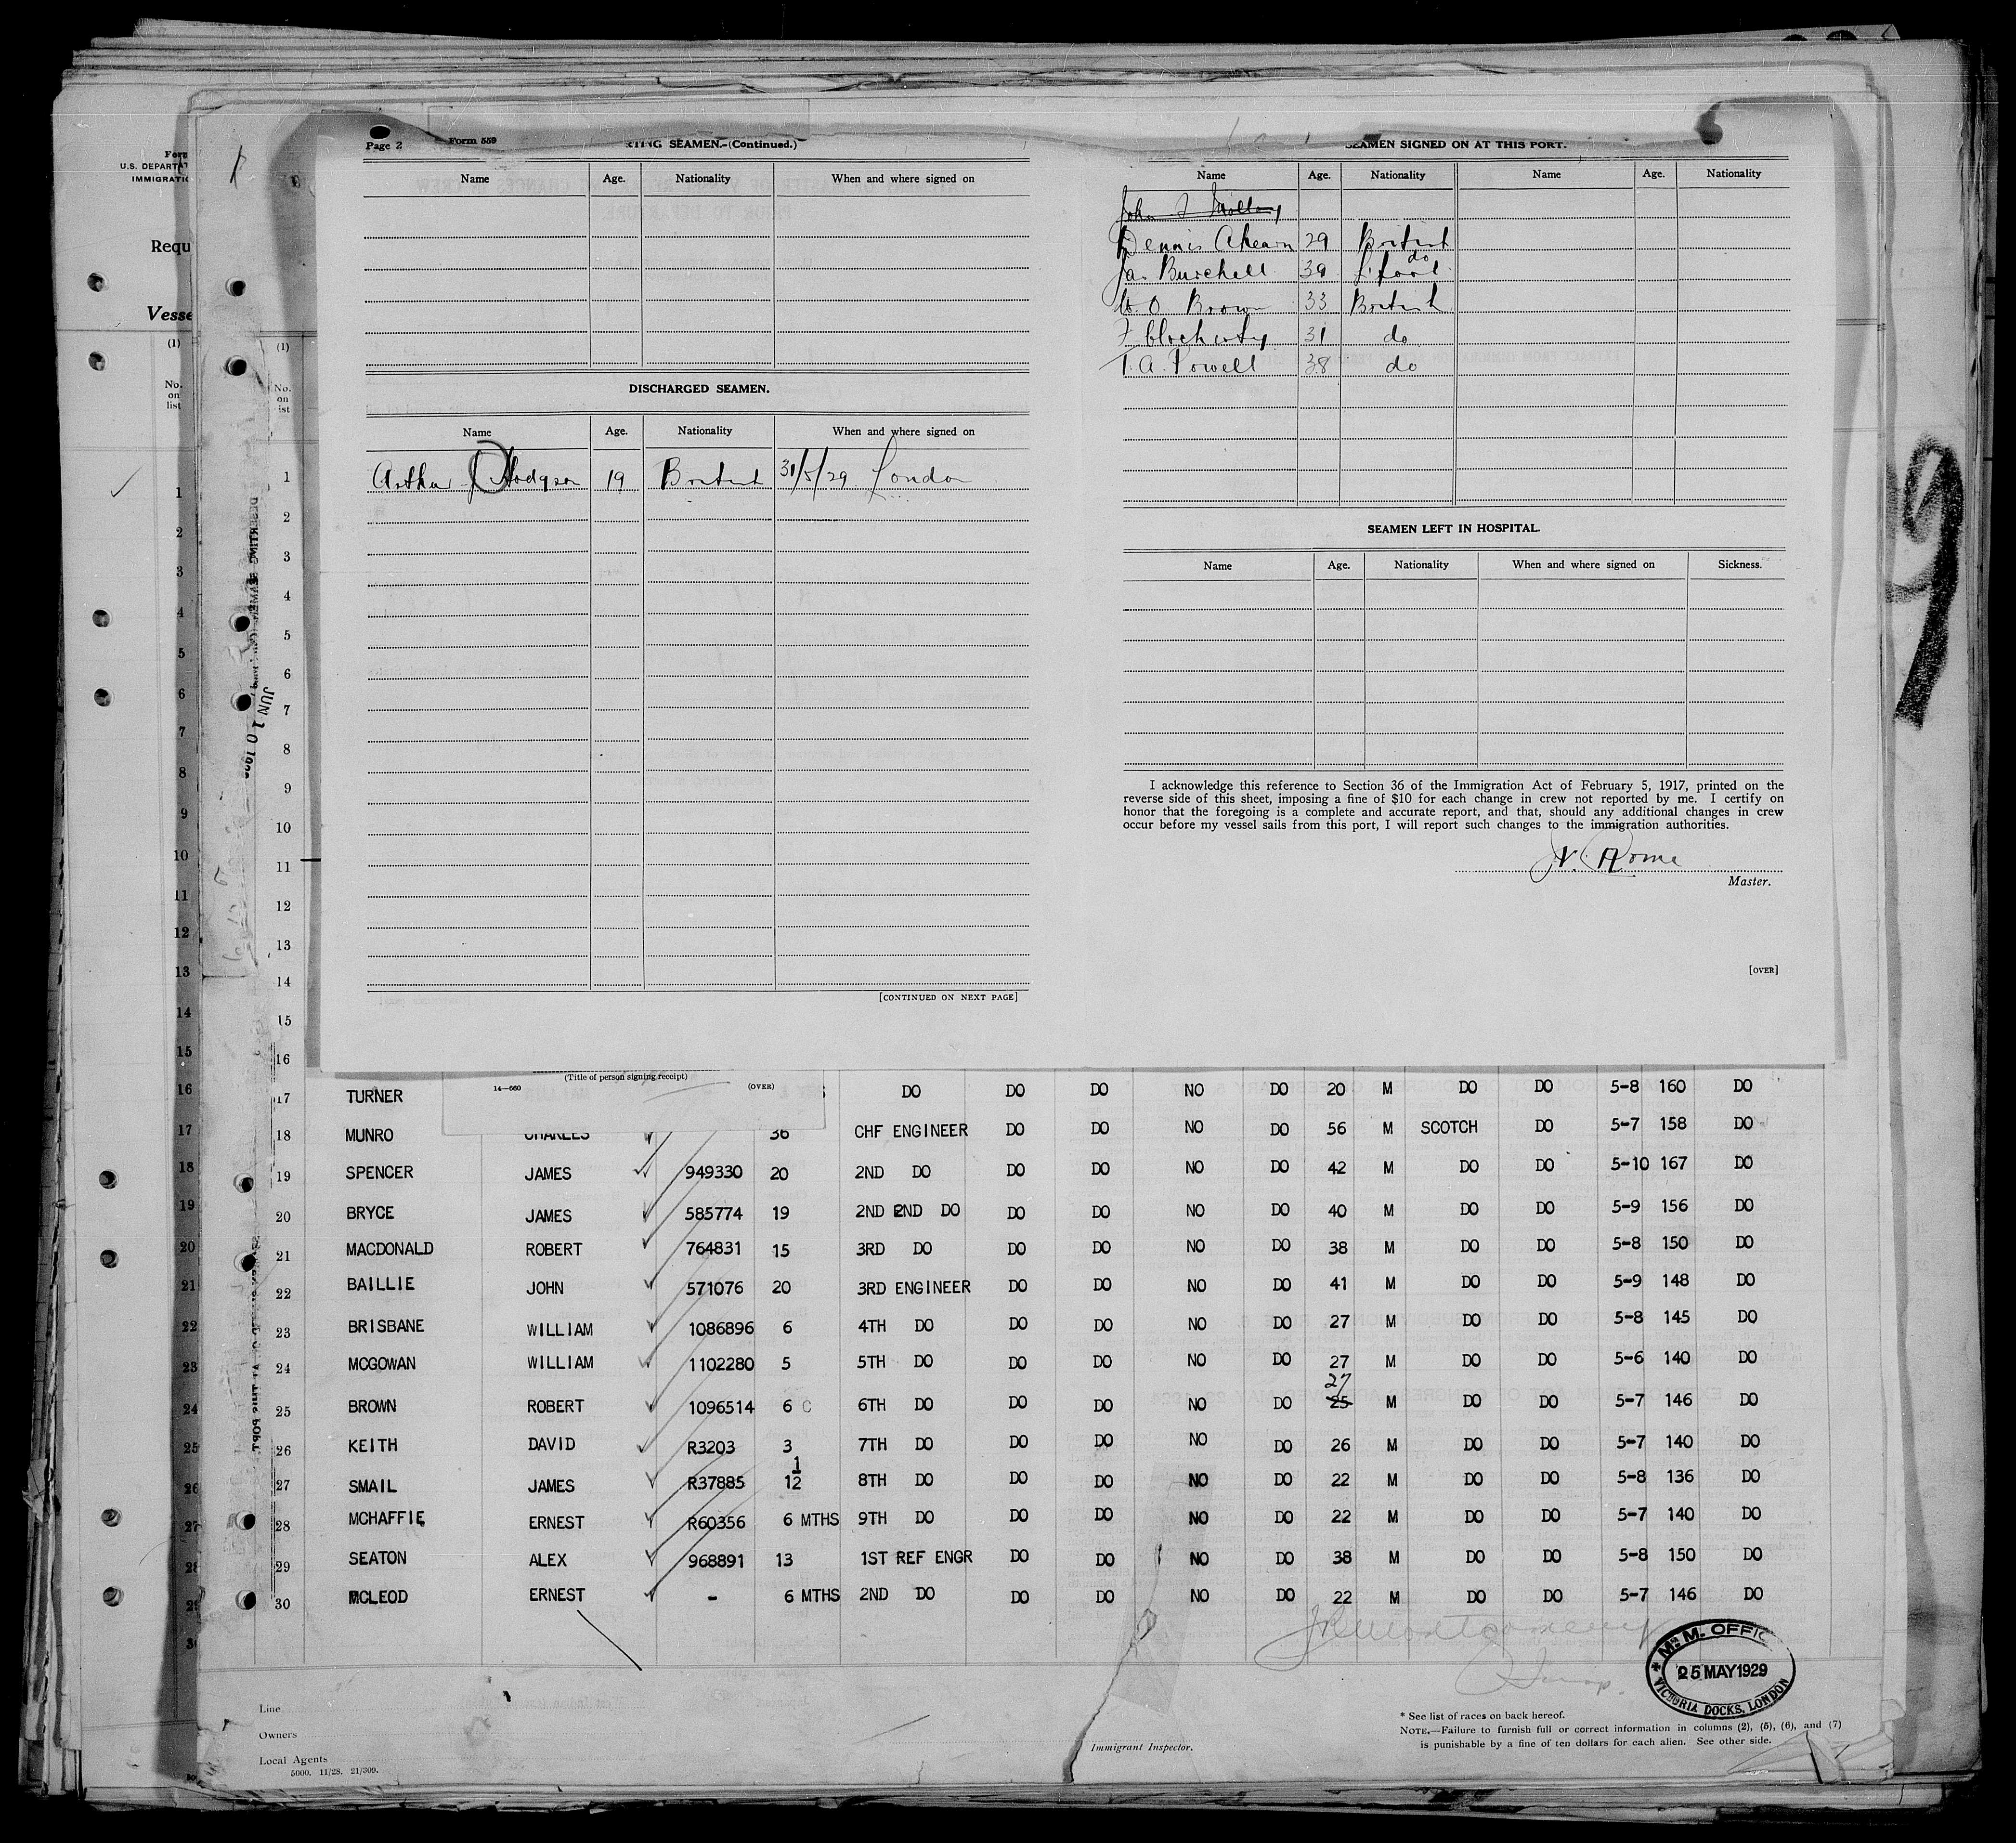 Page 2 Form 559
RTING SEAMEN.-(Continued.)
Name Age. Nationality When and where signed on
DISCHARGED SEAMEN.
Name Age. Nationality When and where signed on
Arthur Hodgson 19 British 31/5/29 London
[CONTINUED ON NEXT PAGE]
SEAMEN SIGNED ON AT THIS PORT.
Name Age. Nationality Name Age. Nationality
John Molloy
Dennis Ahearn 29 British
Jas Burchell 39 do
W. O. Brown 33 British
31 do
T. A. Powell 38 do
SEAMEN LEFT IN HOSPITAL.
Name Age. Nationality When and where signed on Sickness.
I acknowledge this reference to Section 36 of the Immigration Act of February 5, 1917, printed on the
reverse side of this sheet, imposing a fine of $10 for each change in crew not reported by me. I certify on
honor that the foregoing is a complete and accurate report, and that, should any additional changes in crew
occur before my vessel sails from this port, I will report such changes to the immigration authorities.
Master.
[OVER]
For
U.S. DEPARTM
IMMIGRATIO
Requ
Vesse
(1)
No.
on
list
1
2
3
4
5
6
7
8
9
10
11
12
13
14
15
16
17
18
19
20
21
22
23
24
25
26
27
28
29
(1)
No.
on
ist
1
2
3
4
5
6
7
8
9
10
11
12
13
14
15
16
JUN 10
14—660 (Title of person signing receipt) (OVER)
17 TURNER DO DO DO NO DO 20 M DO DO 5-8 160 DO
18 MUNRO CHARLES 36 CHF ENGINEER DO DO NO DO 56 M SCOTCH DO 5-7 158 DO
19 SPENCER JAMES 949330 20 2ND DO DO DO NO DO 42 M DO DO 5-10 167 DO
20 BRYCE JAMES 585774 19 2ND 2ND DO DO DO NO DO 40 M DO DO 5-9 156 DO
21 MACDONALD ROBERT 764831 15 3RD DO DO DO NO DO 38 M DO DO 5-8 150 DO
22 BAILLIE JOHN 571076 20 3RD ENGINEER DO DO NO DO 41 M DO DO 5-9 148 DO
23 BRISBANE WILLIAM 1086896 6 4TH DO DO DO NO DO 27 M DO DO 5-8 145 DO
24 MCGOWAN WILLIAM 1102280 5 5TH DO DO DO NO DO 27 M DO DO 5-6 140 DO
27
25 BROWN ROBERT 1096514 6 C 6TH DO DO DO NO DO 25 M DO DO 5-7 146 DO
26 KEITH DAVID R3203 3 7TH DO DO DO NO DO 26 M DO DO 5-7 140 DO
27 SMAIL JAMES R37885 1/12 8TH DO DO DO NO DO 22 M DO DO 5-8 136 DO
28 MCHAFFIE ERNEST R60356 6 MTHS 9TH DO DO DO NO DO 22 M DO DO 5-7 140 DO
29 SEATON ALEX 968891 13 1ST REF ENGR DO DO NO DO 38 M DO DO 5-8 150 DO
30 MCLEOD ERNEST - 6 MTHS 2ND DO DO DO NO DO 22 M DO DO 5-7 146 DO
M. M. OFFIC
25 MAY 1929
VICTORIA DOCKS, LONDON
Line
Owners
Local Agents
5000. 11/28. 21/309.
Immigrant Inspector.
* See list of races on back hereof.
NOTE.—Failure to furnish full or correct information in columns (2), (5), (6), and (7)
is punishable by a fine of ten dollars for each alien. See other side.